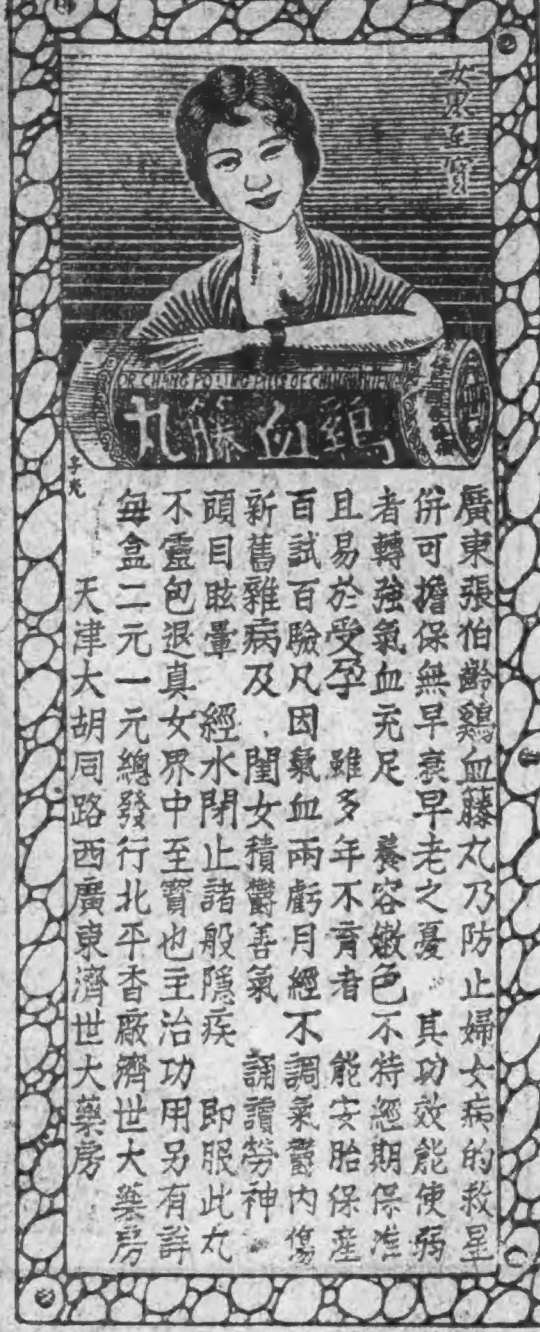 女界至寶
DR CHANG PO LING PILLS OF
鷄血籐丸
子光
廣東張伯齡鷄血籐丸乃防止婦女病的救星
併可擔保無早衰早老之憂 其功效能使弱
者轉強氣血充足 養容嫩色不特經期保准
且易於受孕 雖多年不育者 能安胎保產
百試百驗凡因氣血兩虧月經不調氣鬱內傷
新舊雜病及 閨女積鬱善氣 誦讀勞神
頭目眩暈 經水閉止諸般隱疾 即服此丸
不靈包退真女界中至寶也主治功用另有詳
每盒二元一元總發行北平香廠濟世大藥房
天津大胡同路西廣東濟世大藥房